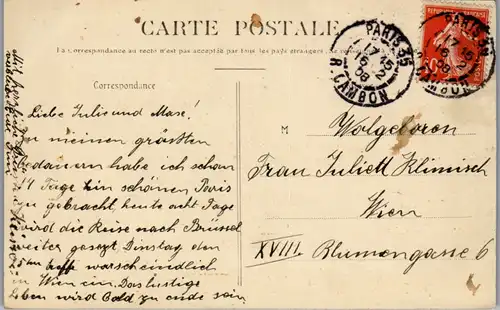 CARTE POSTALE
La correspondance au recto n'est pas acceptée par tous les pays étrangers
PARIS 35
17 15
16 2
08
R. CAMBON
PARIS 35
17 15
16 2
08
R. CAMBON
Correspondance
Liebe Julie und Maxe!
Zu meinen grössten
Bedauern habe ich schon
Tage hin schönen Paris
zu gebracht, heute acht Tage
wird die Reise nach Brüssel
weiter gesezt, Dinstag den
warscheindlich
in Wien ein. Das lustige
Leben wird Bald zu ende sein
M
Wolgeboren
Frau Juliett Klimisch
Wien
XVIII. Blumengasse 6